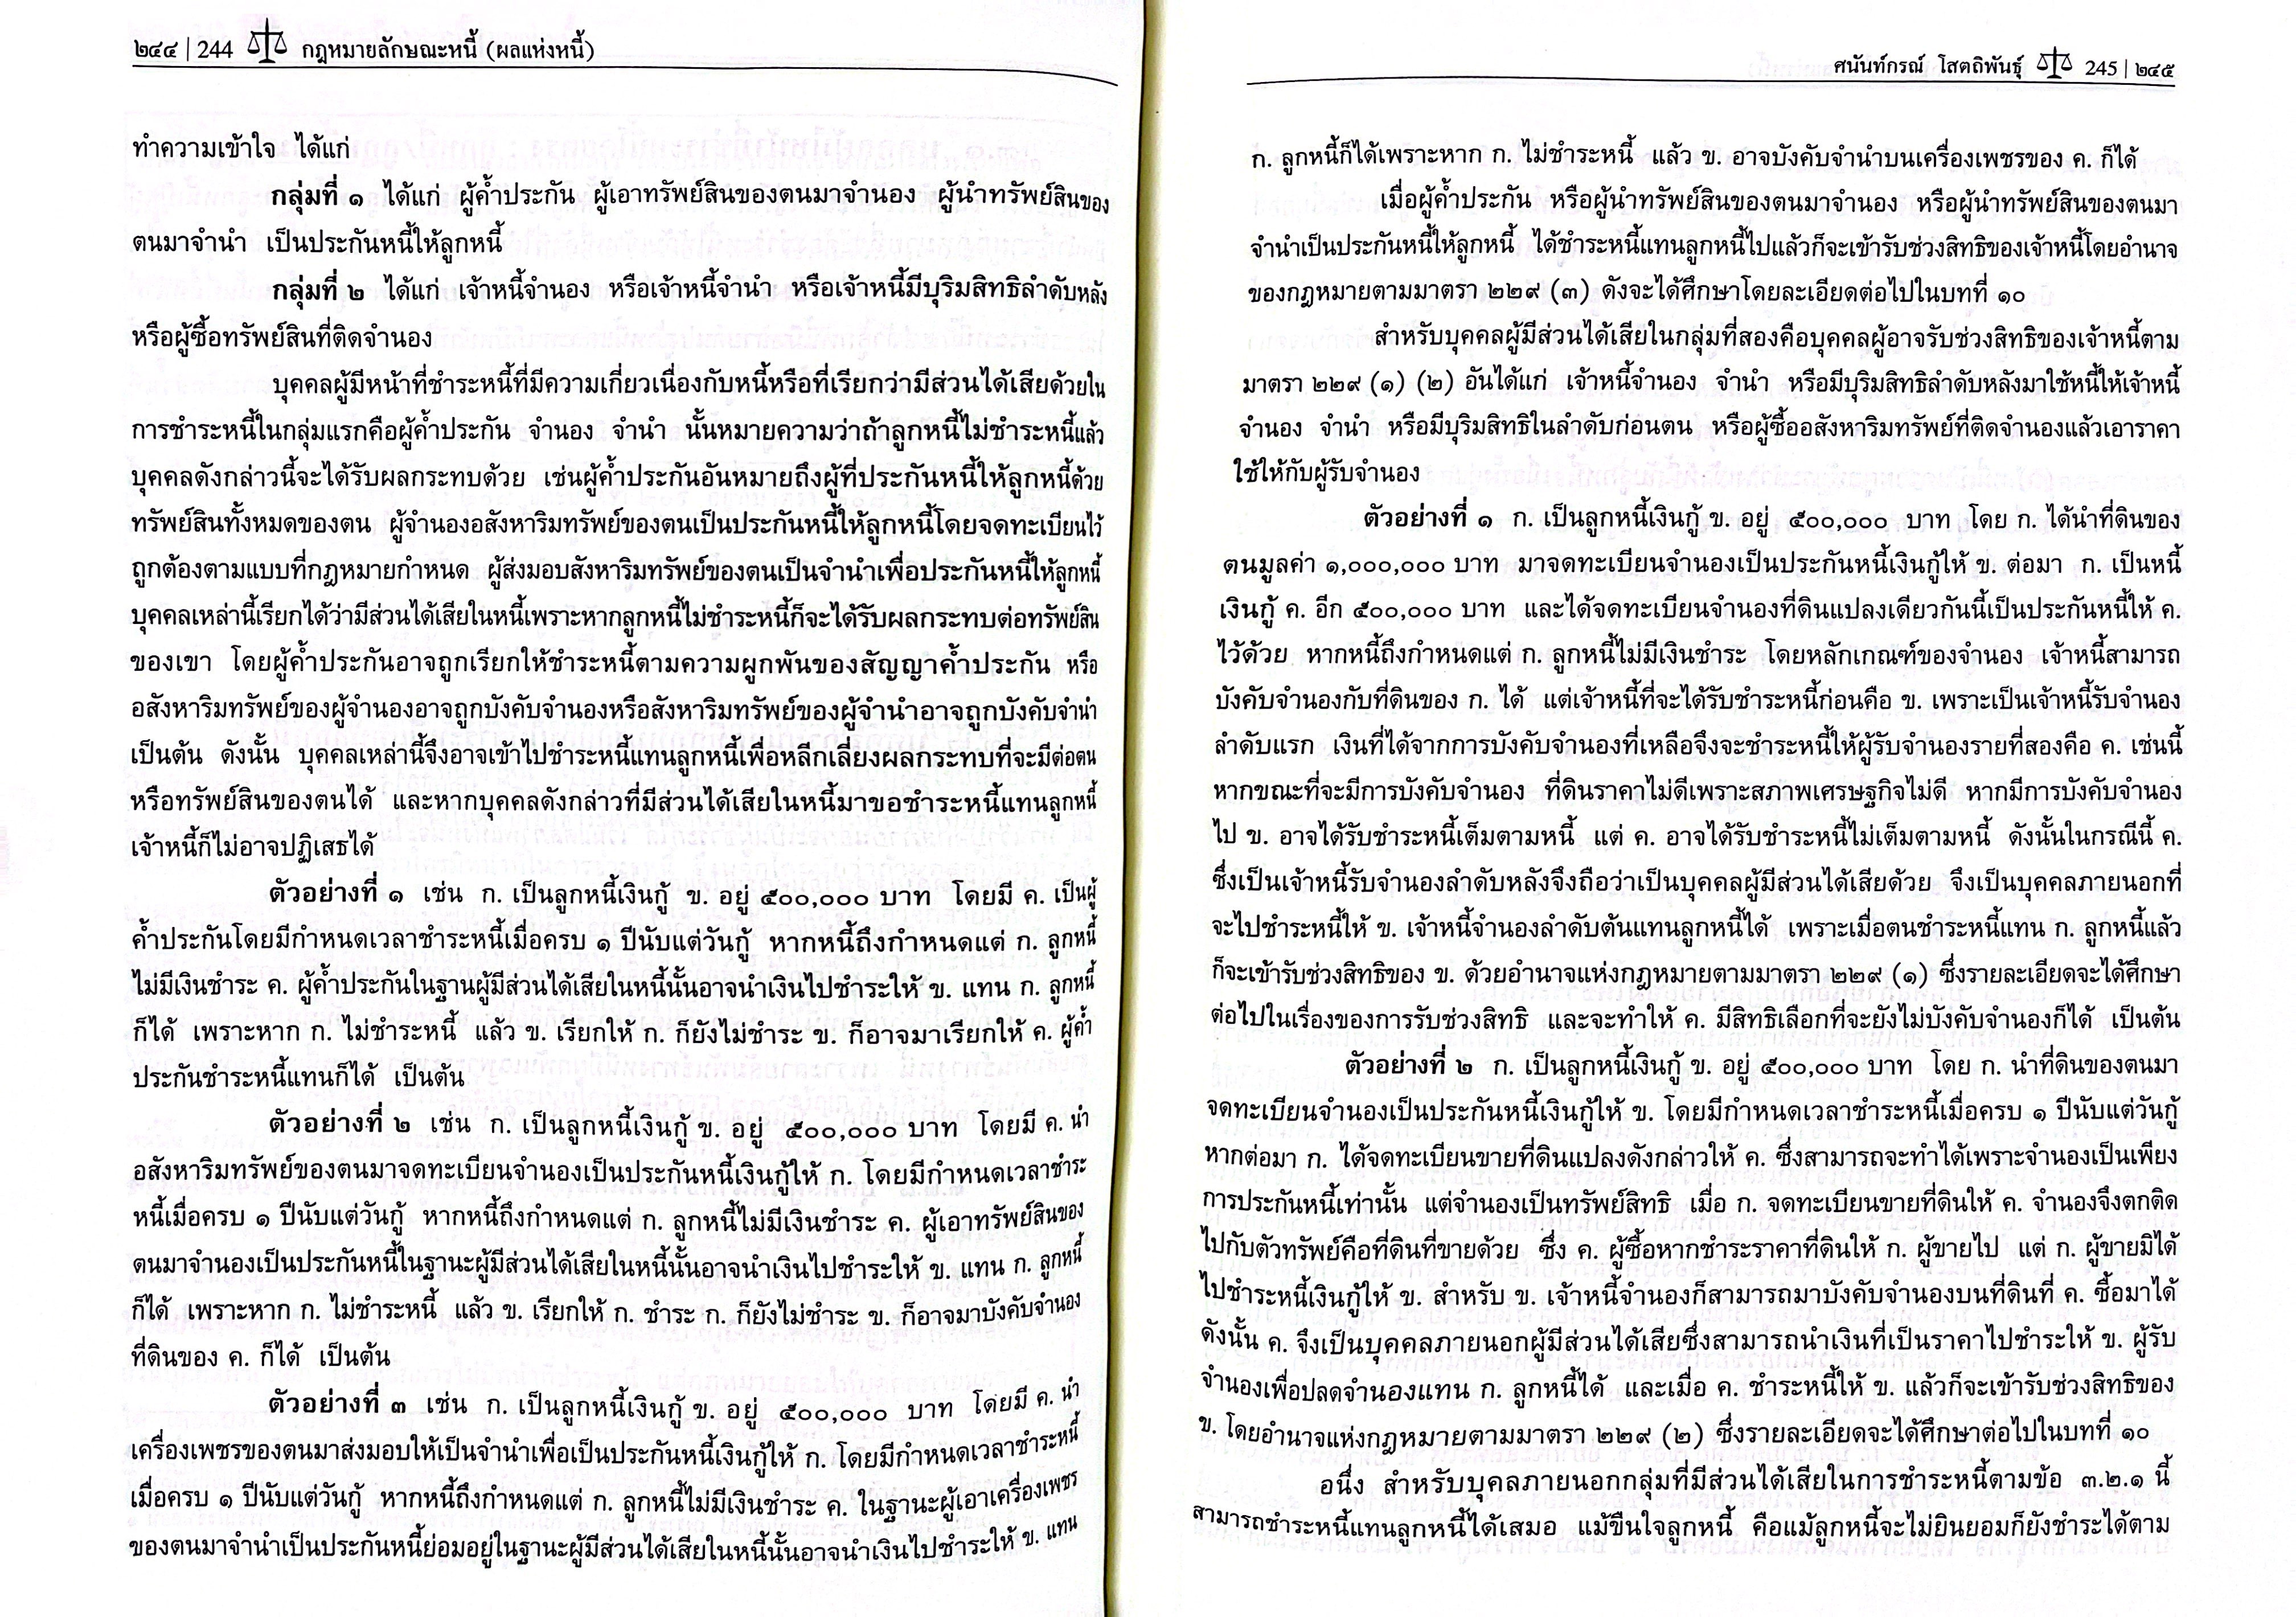 ๒๔๔ | 244 กฎหมายลักษณะหนี้ (ผลแห่งหนี้)
ทำความเข้าใจ ได้แก่
กลุ่มที่ ๑ ได้แก่ ผู้ค้ำประกัน ผู้เอาทรัพย์สินของตนมาจำนอง ผู้นำทรัพย์สินของ
ตนมาจำนำ เป็นประกันหนี้ให้ลูกหนี้
กลุ่มที่ ๒ ได้แก่ เจ้าหนี้จำนอง หรือเจ้าหนี้จำนำ หรือเจ้าหนี้มีบุริมสิทธิลำดับหลัง
หรือผู้ซื้อทรัพย์สินที่ติดจำนอง
บุคคลผู้มีหน้าที่ชำระหนี้ที่มีความเกี่ยวเนื่องกับหนี้หรือที่เรียกว่ามีส่วนได้เสียด้วยใน
การชำระหนี้ในกลุ่มแรกคือผู้ค้ำประกัน จำนอง จำนำ นั้นหมายความว่าถ้าลูกหนี้ไม่ชำระหนี้แล้ว
บุคคลดังกล่าวนี้จะได้รับผลกระทบด้วย เช่นผู้ค้ำประกันอันหมายถึงผู้ที่ประกันหนี้ให้ลูกหนี้ด้วย
ทรัพย์สินทั้งหมดของตน ผู้จำนองอสังหาริมทรัพย์ของตนเป็นประกันหนี้ให้ลูกหนี้โดยจดทะเบียนไว้
ถูกต้องตามแบบที่กฎหมายกำหนด ผู้ส่งมอบสังหาริมทรัพย์ของตนเป็นจำนำเพื่อประกันหนี้ให้ลูกหนี้
บุคคลเหล่านี้เรียกได้ว่ามีส่วนได้เสียในหนี้เพราะหากลูกหนี้ไม่ชำระหนี้ก็จะได้รับผลกระทบต่อทรัพย์สิน
ของเขา โดยผู้ค้ำประกันอาจถูกเรียกให้ชำระหนี้ตามความผูกพันของสัญญาค้ำประกัน หรือ
อสังหาริมทรัพย์ของผู้จำนองอาจถูกบังคับจำนองหรือสังหาริมทรัพย์ของผู้จำนำอาจถูกบังคับจำนำ
เป็นต้น ดังนั้น บุคคลเหล่านี้จึงอาจเข้าไปชำระหนี้แทนลูกหนี้เพื่อหลีกเลี่ยงผลกระทบที่จะมีต่อตน
หรือทรัพย์สินของตนได้ และหากบุคคลดังกล่าวที่มีส่วนได้เสียในหนี้มาขอชำระหนี้แทนลูกหนี้
เจ้าหนี้ก็ไม่อาจปฏิเสธได้
ตัวอย่างที่ ๑ เช่น ก. เป็นลูกหนี้เงินกู้ ข. อยู่ ๕๐๐,๐๐๐ บาท โดยมี ค. เป็นผู้
ค้ำประกันโดยมีกำหนดเวลาชำระหนี้เมื่อครบ ๑ ปีนับแต่วันกู้ หากหนี้ถึงกำหนดแต่ ก. ลูกหนี้
ไม่มีเงินชำระ ค. ผู้ค้ำประกันในฐานผู้มีส่วนได้เสียในหนี้นั้นอาจนำเงินไปชำระให้ ข. แทน ก. ลูกหนี้
ก็ได้ เพราะหาก ก. ไม่ชำระหนี้ แล้ว ข. เรียกให้ ก. ก็ยังไม่ชำระ ข. ก็อาจมาเรียกให้ ค. ผู้ค้ำ
ประกันชำระหนี้แทนก็ได้ เป็นต้น
ตัวอย่างที่ ๒ เช่น ก. เป็นลูกหนี้เงินกู้ ข. อยู่ ๕๐๐,๐๐๐ บาท โดยมี ค. นำ
อสังหาริมทรัพย์ของตนมาจดทะเบียนจำนองเป็นประกันหนี้เงินกู้ให้ ก. โดยมีกำหนดเวลาชำระ
หนี้เมื่อครบ ๑ ปีนับแต่วันกู้ หากหนี้ถึงกำหนดแต่ ก. ลูกหนี้ไม่มีเงินชำระ ค. ผู้เอาทรัพย์สินของ
ตนมาจำนองเป็นประกันหนี้ในฐานะผู้มีส่วนได้เสียในหนี้นั้นอาจนำเงินไปชำระให้ ข. แทน ก. ลูกหนี้
ก็ได้ เพราะหาก ก. ไม่ชำระหนี้ แล้ว ข. เรียกให้ ก. ชำระ ก. ก็ยังไม่ชำระ ข. ก็อาจมาบังคับจำนอง
ที่ดินของ ค. ก็ได้ เป็นต้น
ตัวอย่างที่ ๓ เช่น ก. เป็นลูกหนี้เงินกู้ ข. อยู่ ๕๐๐,๐๐๐ บาท โดยมี ค. นำ
เครื่องเพชรของตนมาส่งมอบให้เป็นจำนำเพื่อเป็นประกันหนี้เงินกู้ให้ ก. โดยมีกำหนดเวลาชำระหนี้
เมื่อครบ ๑ ปีนับแต่วันกู้ หากหนี้ถึงกำหนดแต่ ก. ลูกหนี้ไม่มีเงินชำระ ค. ในฐานะผู้เอาเครื่องเพชร
ของตนมาจำนำเป็นประกันหนี้ย่อมอยู่ในฐานะผู้มีส่วนได้เสียในหนี้นั้นอาจนำเงินไปชำระให้ ข. แทน
ศนันท์กรณ์ โสตถิพันธุ์ 245 | ๒๔๕
ก. ลูกหนี้ก็ได้เพราะหาก ก. ไม่ชำระหนี้ แล้ว ข. อาจบังคับจำนำบนเครื่องเพชรของ ค. ก็ได้
เมื่อผู้ค้ำประกัน หรือผู้นำทรัพย์สินของตนมาจำนอง หรือผู้นำทรัพย์สินของตนมา
จำนำเป็นประกันหนี้ให้ลูกหนี้ ได้ชำระหนี้แทนลูกหนี้ไปแล้วก็จะเข้ารับช่วงสิทธิของเจ้าหนี้โดยอำนาจ
ของกฎหมายตามมาตรา ๒๒๙ (๓) ดังจะได้ศึกษาโดยละเอียดต่อไปในบทที่ ๑๐
สำหรับบุคคลผู้มีส่วนได้เสียในกลุ่มที่สองคือบุคคลผู้อาจรับช่วงสิทธิของเจ้าหนี้ตาม
มาตรา ๒๒๙ (๑) (๒) อันได้แก่ เจ้าหนี้จำนอง จำนำ หรือมีบุริมสิทธิลำดับหลังมาใช้หนี้ให้เจ้าหนี้
จำนอง จำนำ หรือมีบุริมสิทธิในลำดับก่อนตน หรือผู้ซื้ออสังหาริมทรัพย์ที่ติดจำนองแล้วเอาราคา
ใช้ให้กับผู้รับจำนอง
ตัวอย่างที่ ๑ ก. เป็นลูกหนี้เงินกู้ ข. อยู่ ๕๐๐,๐๐๐ บาท โดย ก. ได้นำที่ดินของ
ตนมูลค่า ๑,๐๐๐,๐๐๐ บาท มาจดทะเบียนจำนองเป็นประกันหนี้เงินกู้ให้ ข. ต่อมา ก. เป็นหนี้
เงินกู้ ค. อีก ๕๐๐,๐๐๐ บาท และได้จดทะเบียนจำนองที่ดินแปลงเดียวกันนี้เป็นประกันหนี้ให้ ค.
ไว้ด้วย หากหนี้ถึงกำหนดแต่ ก. ลูกหนี้ไม่มีเงินชำระ โดยหลักเกณฑ์ของจำนอง เจ้าหนี้สามารถ
บังคับจำนองกับที่ดินของ ก. ได้ แต่เจ้าหนี้ที่จะได้รับชำระหนี้ก่อนคือ ข. เพราะเป็นเจ้าหนี้รับจำนอง
ลำดับแรก เงินที่ได้จากการบังคับจำนองที่เหลือจึงจะชำระหนี้ให้ผู้รับจำนองรายที่สองคือ ค. เช่นนี้
หากขณะที่จะมีการบังคับจำนอง ที่ดินราคาไม่ดีเพราะสภาพเศรษฐกิจไม่ดี หากมีการบังคับจำนอง
ไป ข. อาจได้รับชำระหนี้เต็มตามหนี้ แต่ ค. อาจได้รับชำระหนี้ไม่เต็มตามหนี้ ดังนั้นในกรณีนี้ ค.
ซึ่งเป็นเจ้าหนี้รับจำนองลำดับหลังจึงถือว่าเป็นบุคคลผู้มีส่วนได้เสียด้วย จึงเป็นบุคคลภายนอกที่
จะไปชำระหนี้ให้ ข. เจ้าหนี้จำนองลำดับต้นแทนลูกหนี้ได้ เพราะเมื่อตนชำระหนี้แทน ก. ลูกหนี้แล้ว
ก็จะเข้ารับช่วงสิทธิของ ข. ด้วยอำนาจแห่งกฎหมายตามมาตรา ๒๒๙ (๑) ซึ่งรายละเอียดจะได้ศึกษา
ต่อไปในเรื่องของการรับช่วงสิทธิ และจะทำให้ ค. มีสิทธิเลือกที่จะยังไม่บังคับจำนองก็ได้ เป็นต้น
ตัวอย่างที่ ๒ ก. เป็นลูกหนี้เงินกู้ ข. อยู่ ๕๐๐,๐๐๐ บาท โดย ก. นำที่ดินของตนมา
จดทะเบียนจำนองเป็นประกันหนี้เงินกู้ให้ ข. โดยมีกำหนดเวลาชำระหนี้เมื่อครบ ๑ ปีนับแต่วันกู้
หากต่อมา ก. ได้จดทะเบียนขายที่ดินแปลงดังกล่าวให้ ค. ซึ่งสามารถจะทำได้เพราะจำนองเป็นเพียง
การประกันหนี้เท่านั้น แต่จำนองเป็นทรัพย์สิทธิ เมื่อ ก. จดทะเบียนขายที่ดินให้ ค. จำนองจึงตกติด
ไปกับตัวทรัพย์คือที่ดินที่ขายด้วย ซึ่ง ค. ผู้ซื้อหากชำระราคาที่ดินให้ ก. ผู้ขายไป แต่ ก. ผู้ขายมิได้
ไปชำระหนี้เงินกู้ให้ ข. สำหรับ ข. เจ้าหนี้จำนองก็สามารถมาบังคับจำนองบนที่ดินที่ ค. ซื้อมาได้
ดังนั้น ค. จึงเป็นบุคคลภายนอกผู้มีส่วนได้เสียซึ่งสามารถนำเงินที่เป็นราคาไปชำระให้ ข. ผู้รับ
จำนองเพื่อปลดจำนองแทน ก. ลูกหนี้ได้ และเมื่อ ค. ชำระหนี้ให้ ข. แล้วก็จะเข้ารับช่วงสิทธิของ
ข. โดยอำนาจแห่งกฎหมายตามมาตรา ๒๒๙ (๒) ซึ่งรายละเอียดจะได้ศึกษาต่อไปในบทที่ ๑๐
อนึ่ง สำหรับบุคลภายนอกกลุ่มที่มีส่วนได้เสียในการชำระหนี้ตามข้อ ๓.๒.๑ นี้
สามารถชำระหนี้แทนลูกหนี้ได้เสมอ แม้ขืนใจลูกหนี้ คือแม้ลูกหนี้จะไม่ยินยอมก็ยังชำระได้ตาม